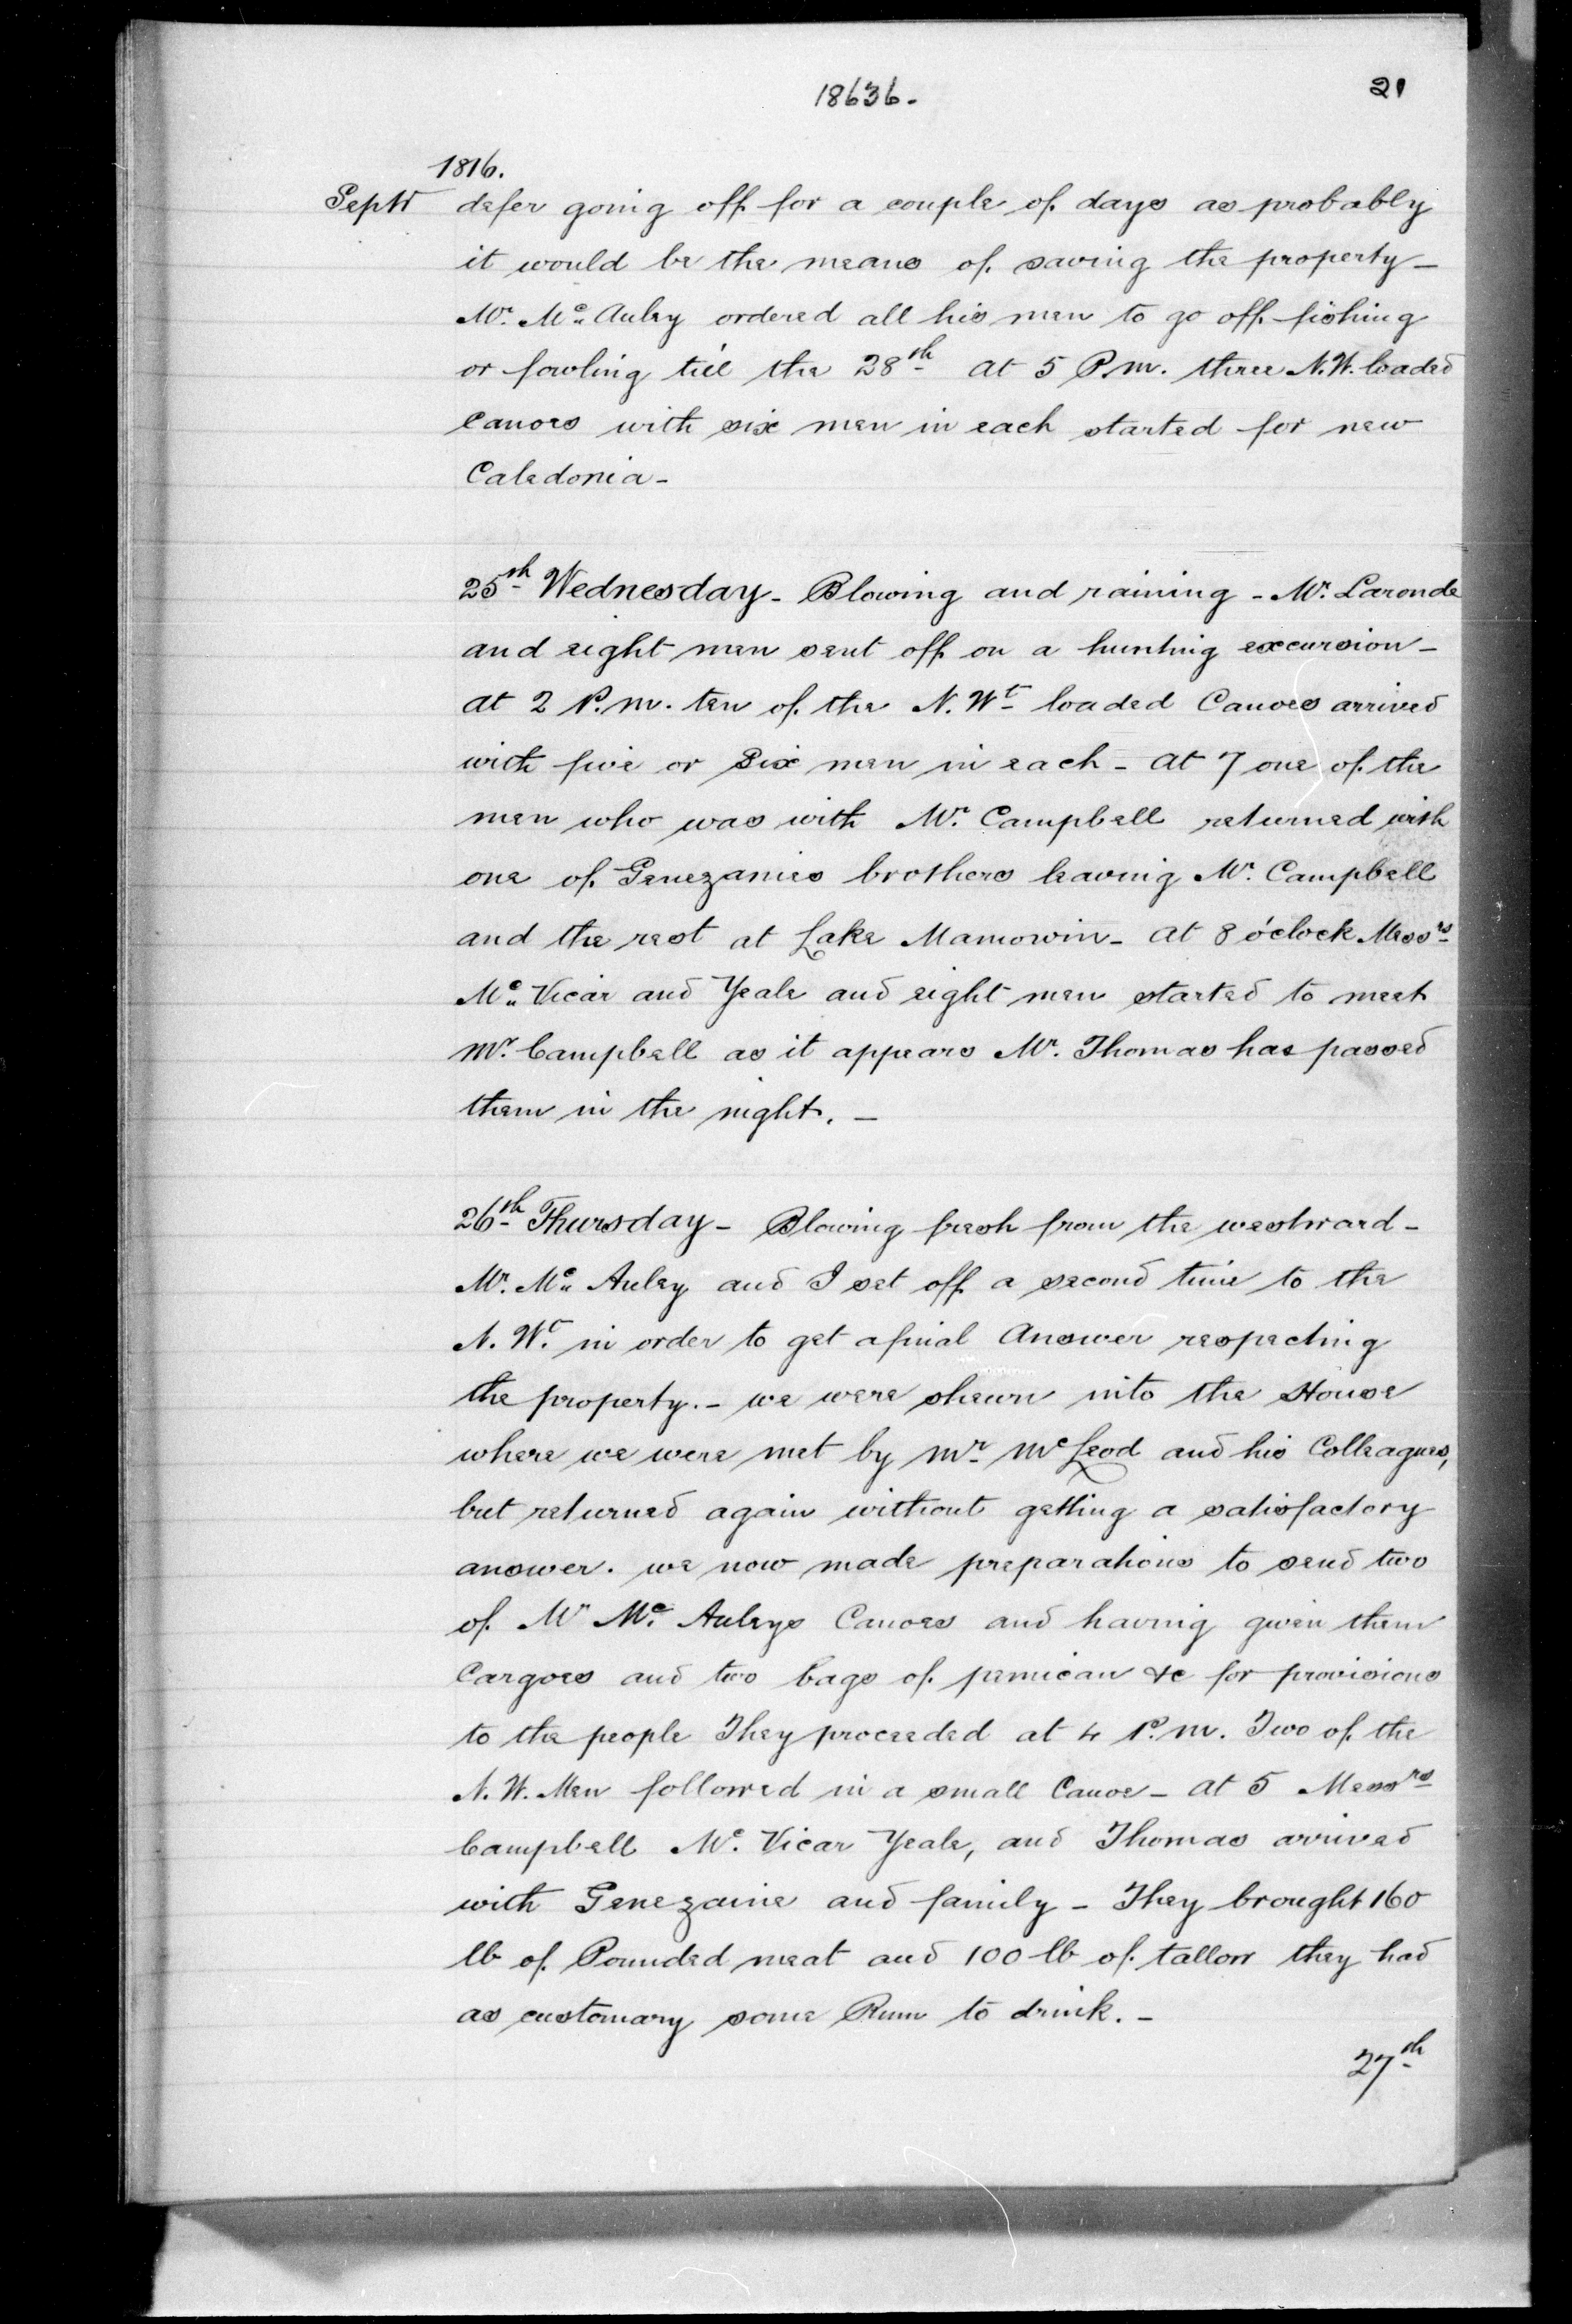 18636.
21
1816.
Septr defer going off for a couple of days as probably
it would be the means of saving the property -
Mr. Mc Auley ordered all his men to go off fishing
or fowling till the 28th at 5 P.m. three N.W. loaded
Canoes with six men in each started for new
Caledonia -
25th Wednesday - Blowing and raining - Mr. Laronde
and eight men sent off on a hunting excursion -
at 2 P.m. ten of the N. Wt loaded Canoes arrived
with five or Six men in each - at 7 one of the
men who was with Mr. Campbell returned with
one of Genezanies brothers leaving Mr. Campbell
and the rest at Lake Mamowin - at 8 o'clock Messrs
Mc Vicar and Yeale and eight men started to meet
Mr. Campbell as it appears Mr. Thomas has passed
them in the night. -
26th Thursday - Blowing fresh from the westward -
Mr. Mc Auley and I set off a second time to the
N. Wt. in order to get a final Answer respecting
the property. - we were shewn into the House
where we were met by Mr McLeod and his Colleagues,
but returned again without getting a satisfactory
answer. we now made preparations to send two
of Mr Mc. Auleys Canoes and having given them
Cargoes and two bags of pemican &c for provisions
to the people They proceeded at 4 P.m. Two of the
N.W. Men followed in a small Canoe - at 5 Messrs
Campbell Mc. Vicar Yeale, and Thomas arrived
with Genezaine and family - They brought 160
lb of Pounded meat and 100 lb of tallow they had
as customary some Rum to drink. -
27th